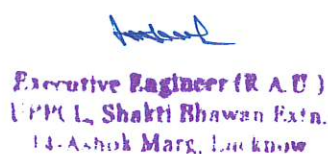 Executive Engineer (R A U )
UPPCL, Shakti Bhawan Extn.
14-Ashok Marg, Lucknow